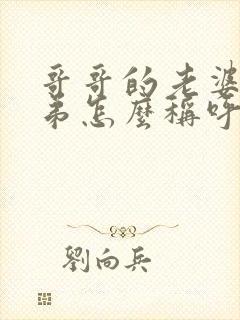 哥哥的老婆
弟怎麼稱呼
劉向兵